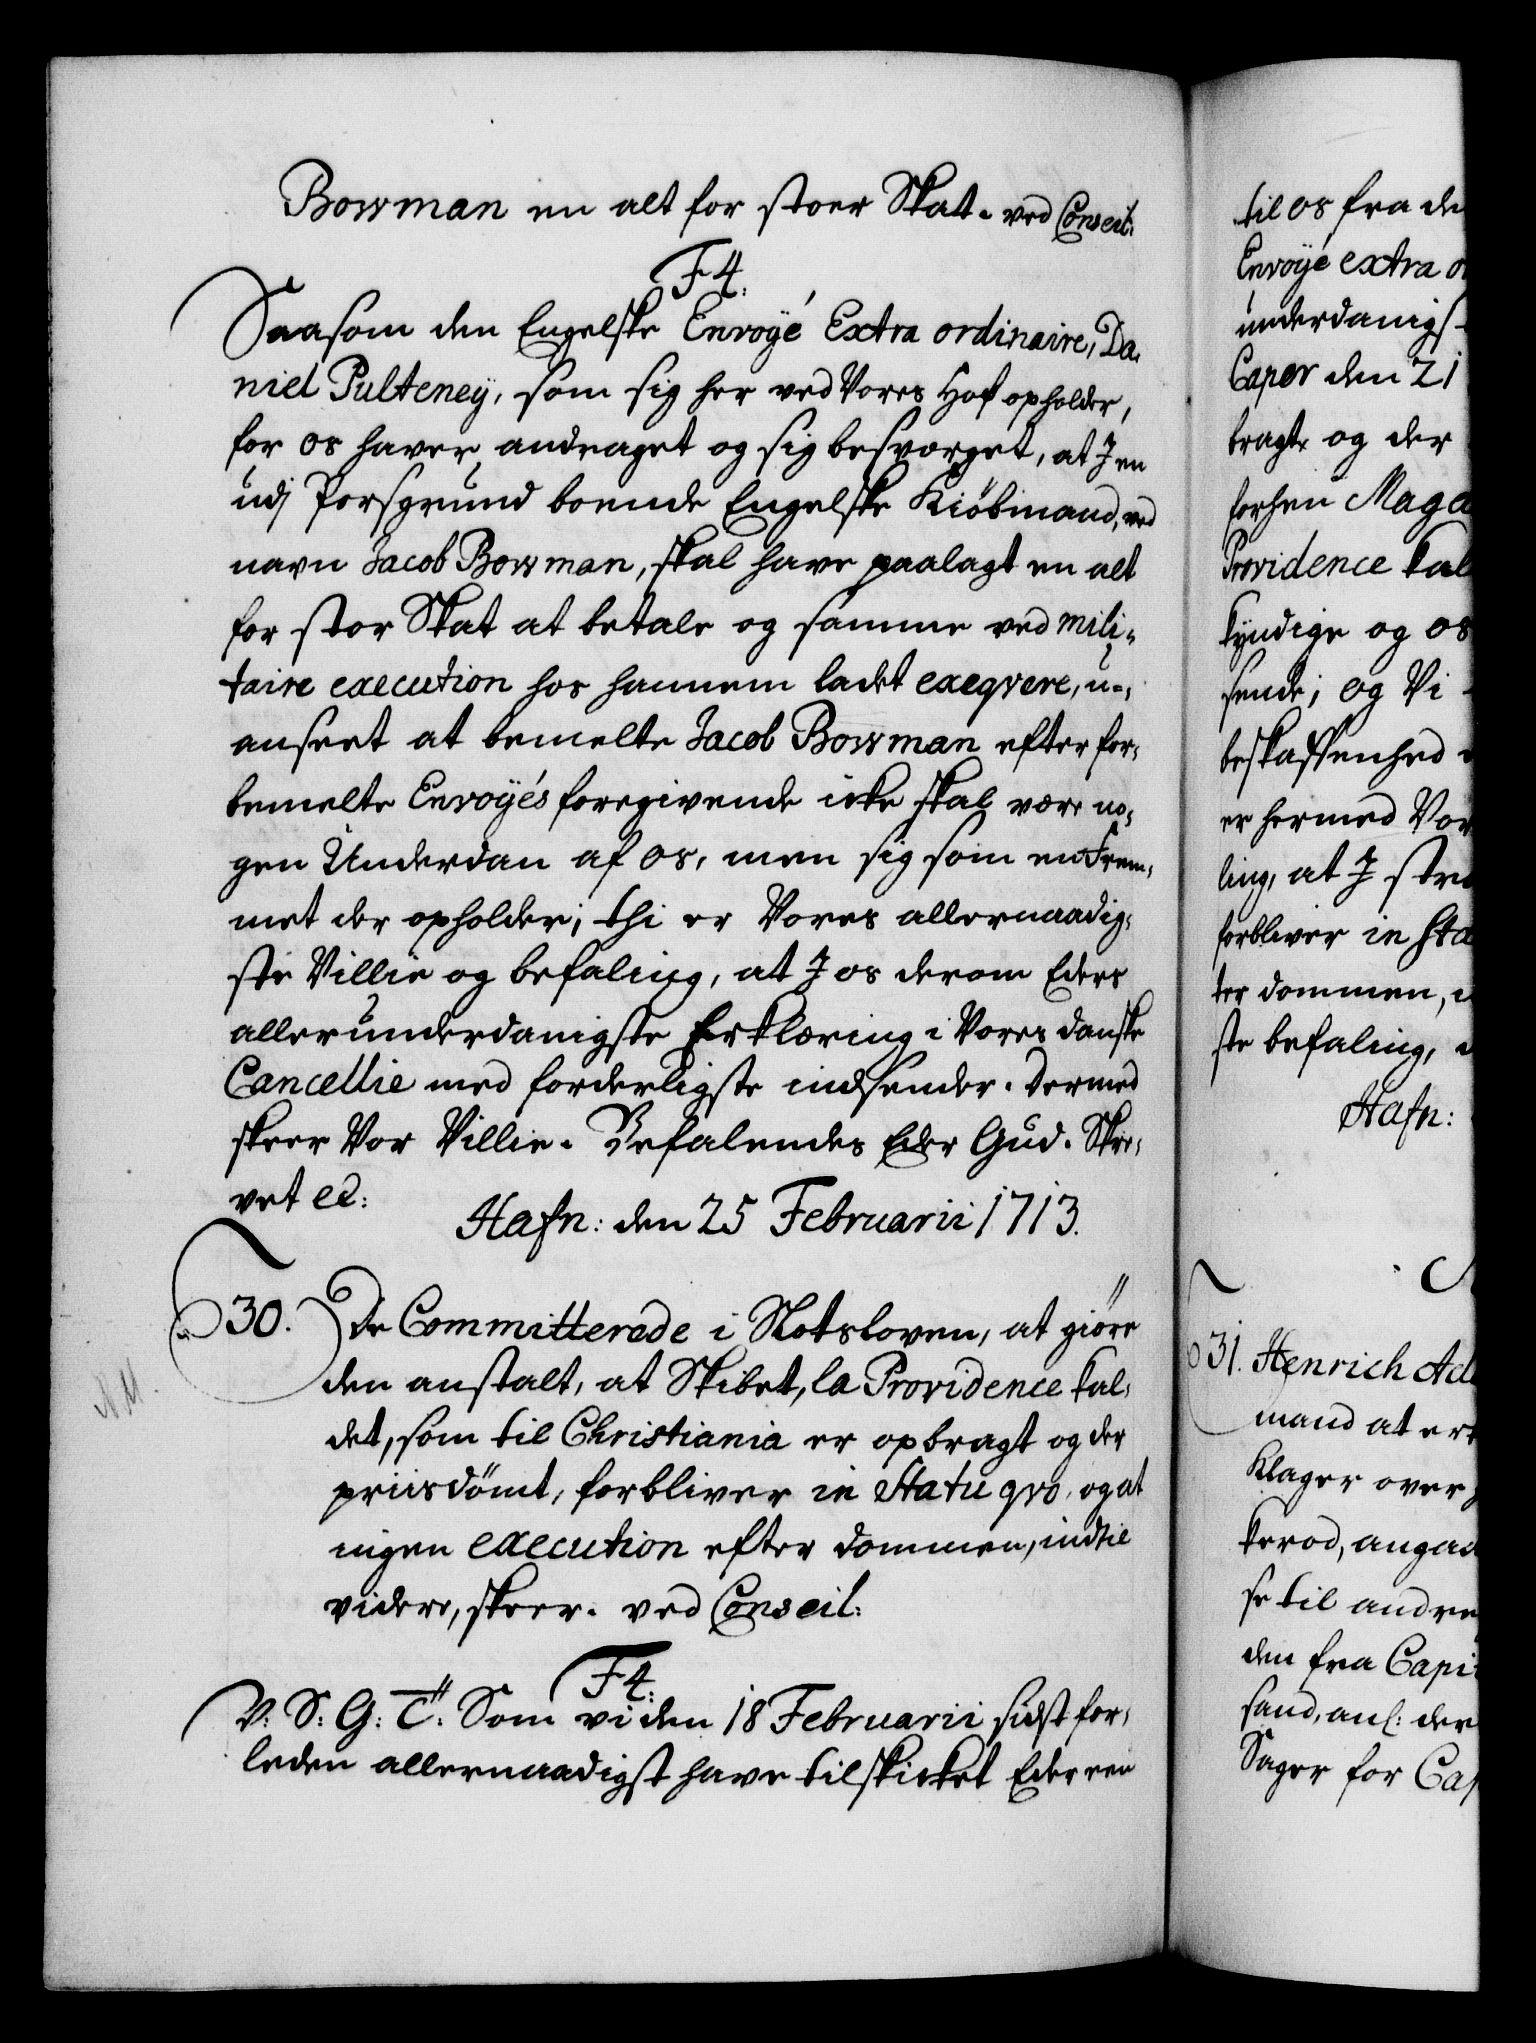 Bowman en alt for stoer Skat. ved Conseil:
F4.
Saasom den Engelske Envoyé Extra ordinaire, Da-
niel Pulteneÿ, som sig her ved Vores Hof opholder,
for os haver andraget og sig besværget, at I en
udj Porsgrund boende Engelske Kiöbmand, ved
navn Jacob Bowman, skal have paalagt en alt
for stor Skat at betale og samme ved mili-
taire execution hos hannem ladet exeqvere, u-
anseet at bemelte Jacob Bowman efter for-
bemelte Envoyés foregivende icke skal være no-
gen Underdan af os, men sig som en Frem-
met der opholder; thi er Vores allernaadig-
ste Villie og befaling, at I os derom Eders
allerunderdanigste Erklæring i Vores danske
Cancellie med forderligste indsender. Dermed
skeer Vor Villie. Befalendes Eder Gud. Skre-
vet ec:
Hafn: den 25 Februarii 1713.
30. De Committerede i Slotsloven, at giöre
den anstalt, at Skibet, la Providence kal-
det, som til Christiania er opbragt og der
priisdömt, forbliver in Statu qvo, og at
ingen execution efter dommen, indtil
videre, skeer. ved Conseil:
F4.
V: S: G: T: Som vi den 18 Februarii sidst for-
leden allernaadigst have tilskicket Eder een
til os fra de
Envoÿé extra o
underdanigs-
Caper den 21
bragt og der
forhen Maga
Providence kal
kyndige og os
sende; og Vi
beskaffenhed
er hermed Vor
ling, at I stra
forbliver in Sta
ter dommen,
ste befaling,
Hafn:
31. Henrich Ad
mand at er
Klager over
kerod, angaa
se til andre
den fra Capi
sand, anl: der
Sager for Cap